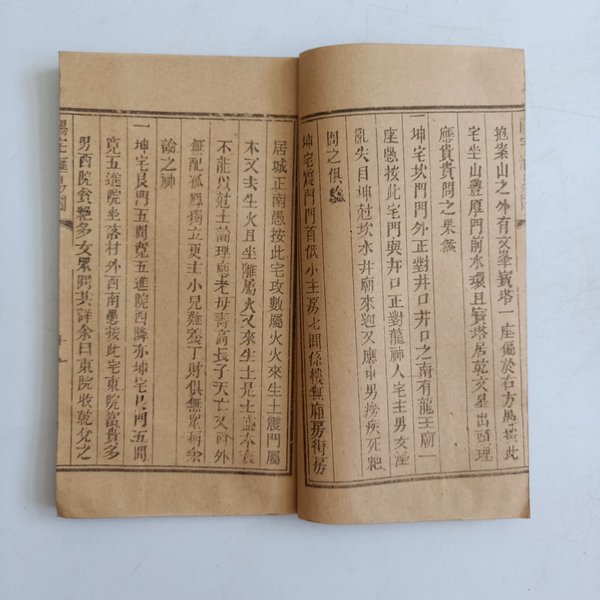 抱案山之外有文筆寶塔一座偏於右方愚按此
宅坐山豐厚門前水環且寶塔居乾文星出頭理
應貴貴問之果然
一坤宅坎門門外正對井口井口之南有龍王廟一
座愚按此宅門與井口正對龍神人宅主男女淫
亂失目坤尅坎水井廟來廹又應中男癆疾死絕
問之俱
坤宅震門門首低小主房七間係樓無廂房街房
居城正南愚按此宅攻數屬火火來生土震門屬
木又去生火且坐離屬火又來生土是土盛木衰
不能以尅土論理應老母壽高長子夭亡又因外
無配孤尊獨立更主小兒難養丁財俱無眾稱余
論之神
一坤宅艮門五間寬五進院西隣亦坤宅艮門五間
寬五進院坐落村外西南愚按此宅東院富貴多
男西院貧絕多女眾問其詳余曰東院收乾允之
陽宅